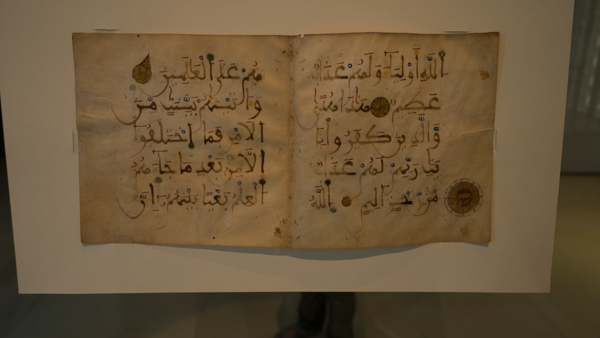 الله أوليا ولهم عذاب
عظيم هذا هدى
والذين كفروا بـٔا
يت ربهم لهم عذاب
من رجز أليم الله
هم على العلمين
وءاتينهم بينت من
الامر فما اختلفوا
الا من بعد ما جاهم
العلم بغيا بينهم إن